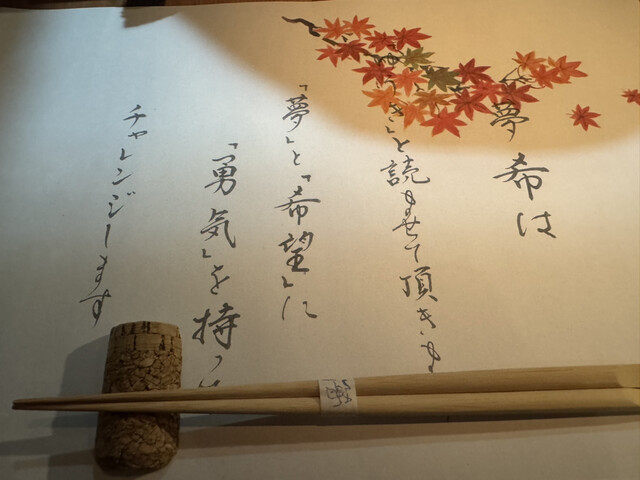 夢希は
き」と読ませて頂きま
「夢」と「希望」に
「勇気」を持っ
チャレンジします